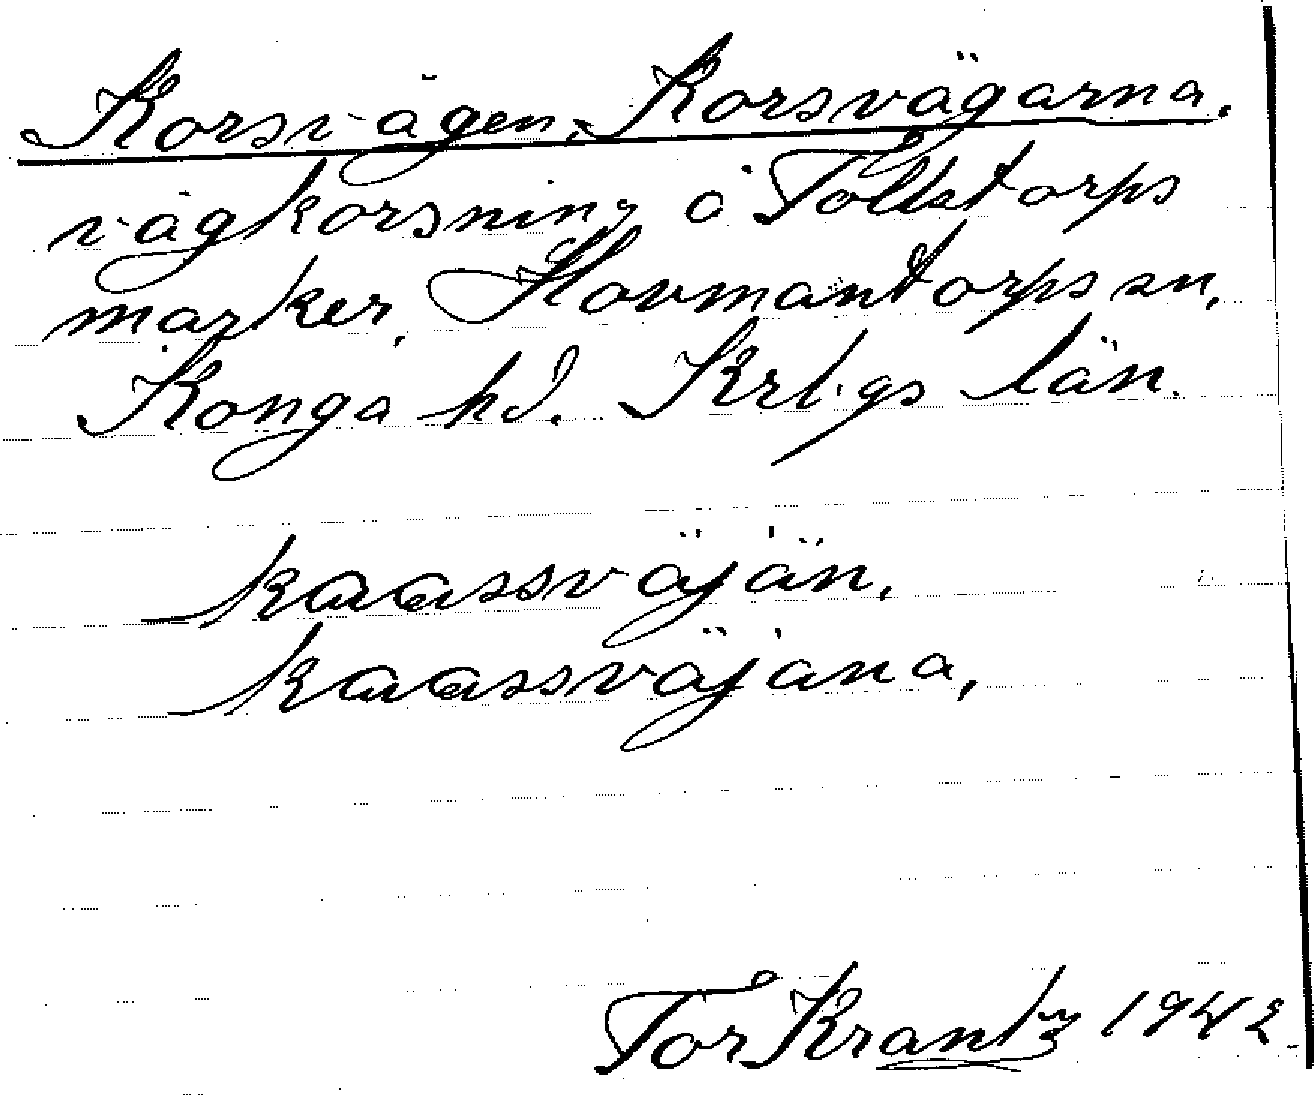 Korsvägen, Korsvägarna.
vägkorsning å Tollstorps
marker, Hovmantorps sn,
Konga hd. Krbgs län.
kaassväjän,
kaassväjäna,
Tor Krantz 1942